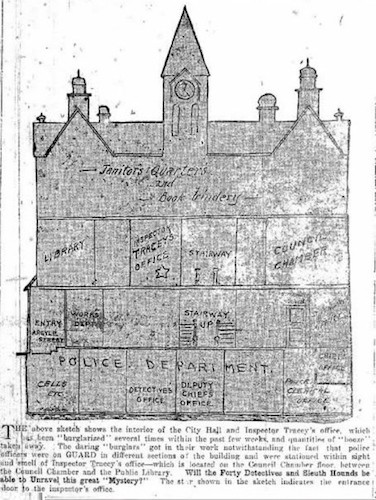 Janitors Quarters
and
Book Bindery
LIBRARY
INSPECTOR
TRACEY'S
OFFICE
STAIRWAY
COUNCIL
CHAMBER
ENTRY
ARGYLE
STREET
WORKS
DEPT
STAIRWAY
UP
POLICE DEPARTMENT
CELLS
DETECTIVES
OFFICE
DEPUTY
CHIEFS
OFFICE
CLERICAL
OFFICE
THE above sketch shows the interior of the City Hall and Inspector Tracey's office, which
has been "burglarized" several times within the past few weeks, and quantities of "booze"
taken away. The daring "burglars" got in their work notwithstanding the fact that police
officers were on GUARD in different sections of the building and were stationed within sight
and smell of Inspector Tracey's office—which is located on the Council Chamber floor, between
the Council Chamber and the Public Library. Will the Forty Detectives and Sleuth Hounds be
able to Unravel this great "Mystery?" The star shown in the sketch indicates the entrance
door to the inspector's office.